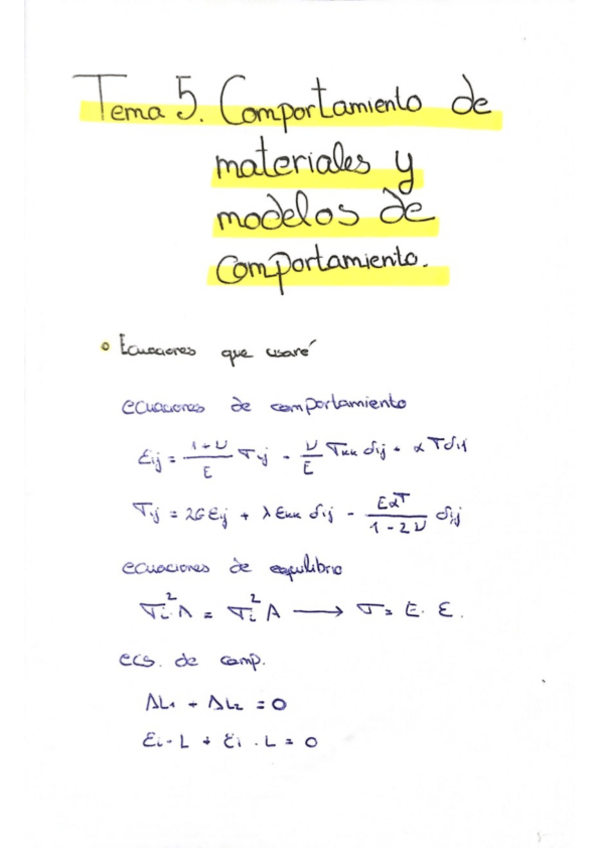 Tema 5. Comportamiento de
materiales y
modelos de
comportamiento.
Ecuaciones que usaré
ecuaciones de comportamiento
εij = 1+ν/E σij - ν/E σkk δij + α T δij
σij = 2G εij + λ εkk δij - EαT/1-2ν δij
ecuaciones de equilibrio
σi² A = σi² A → σ = E · ε.
ecs. de comp.
ΔL1 + ΔL2 = 0
εi · L + εi · L = 0